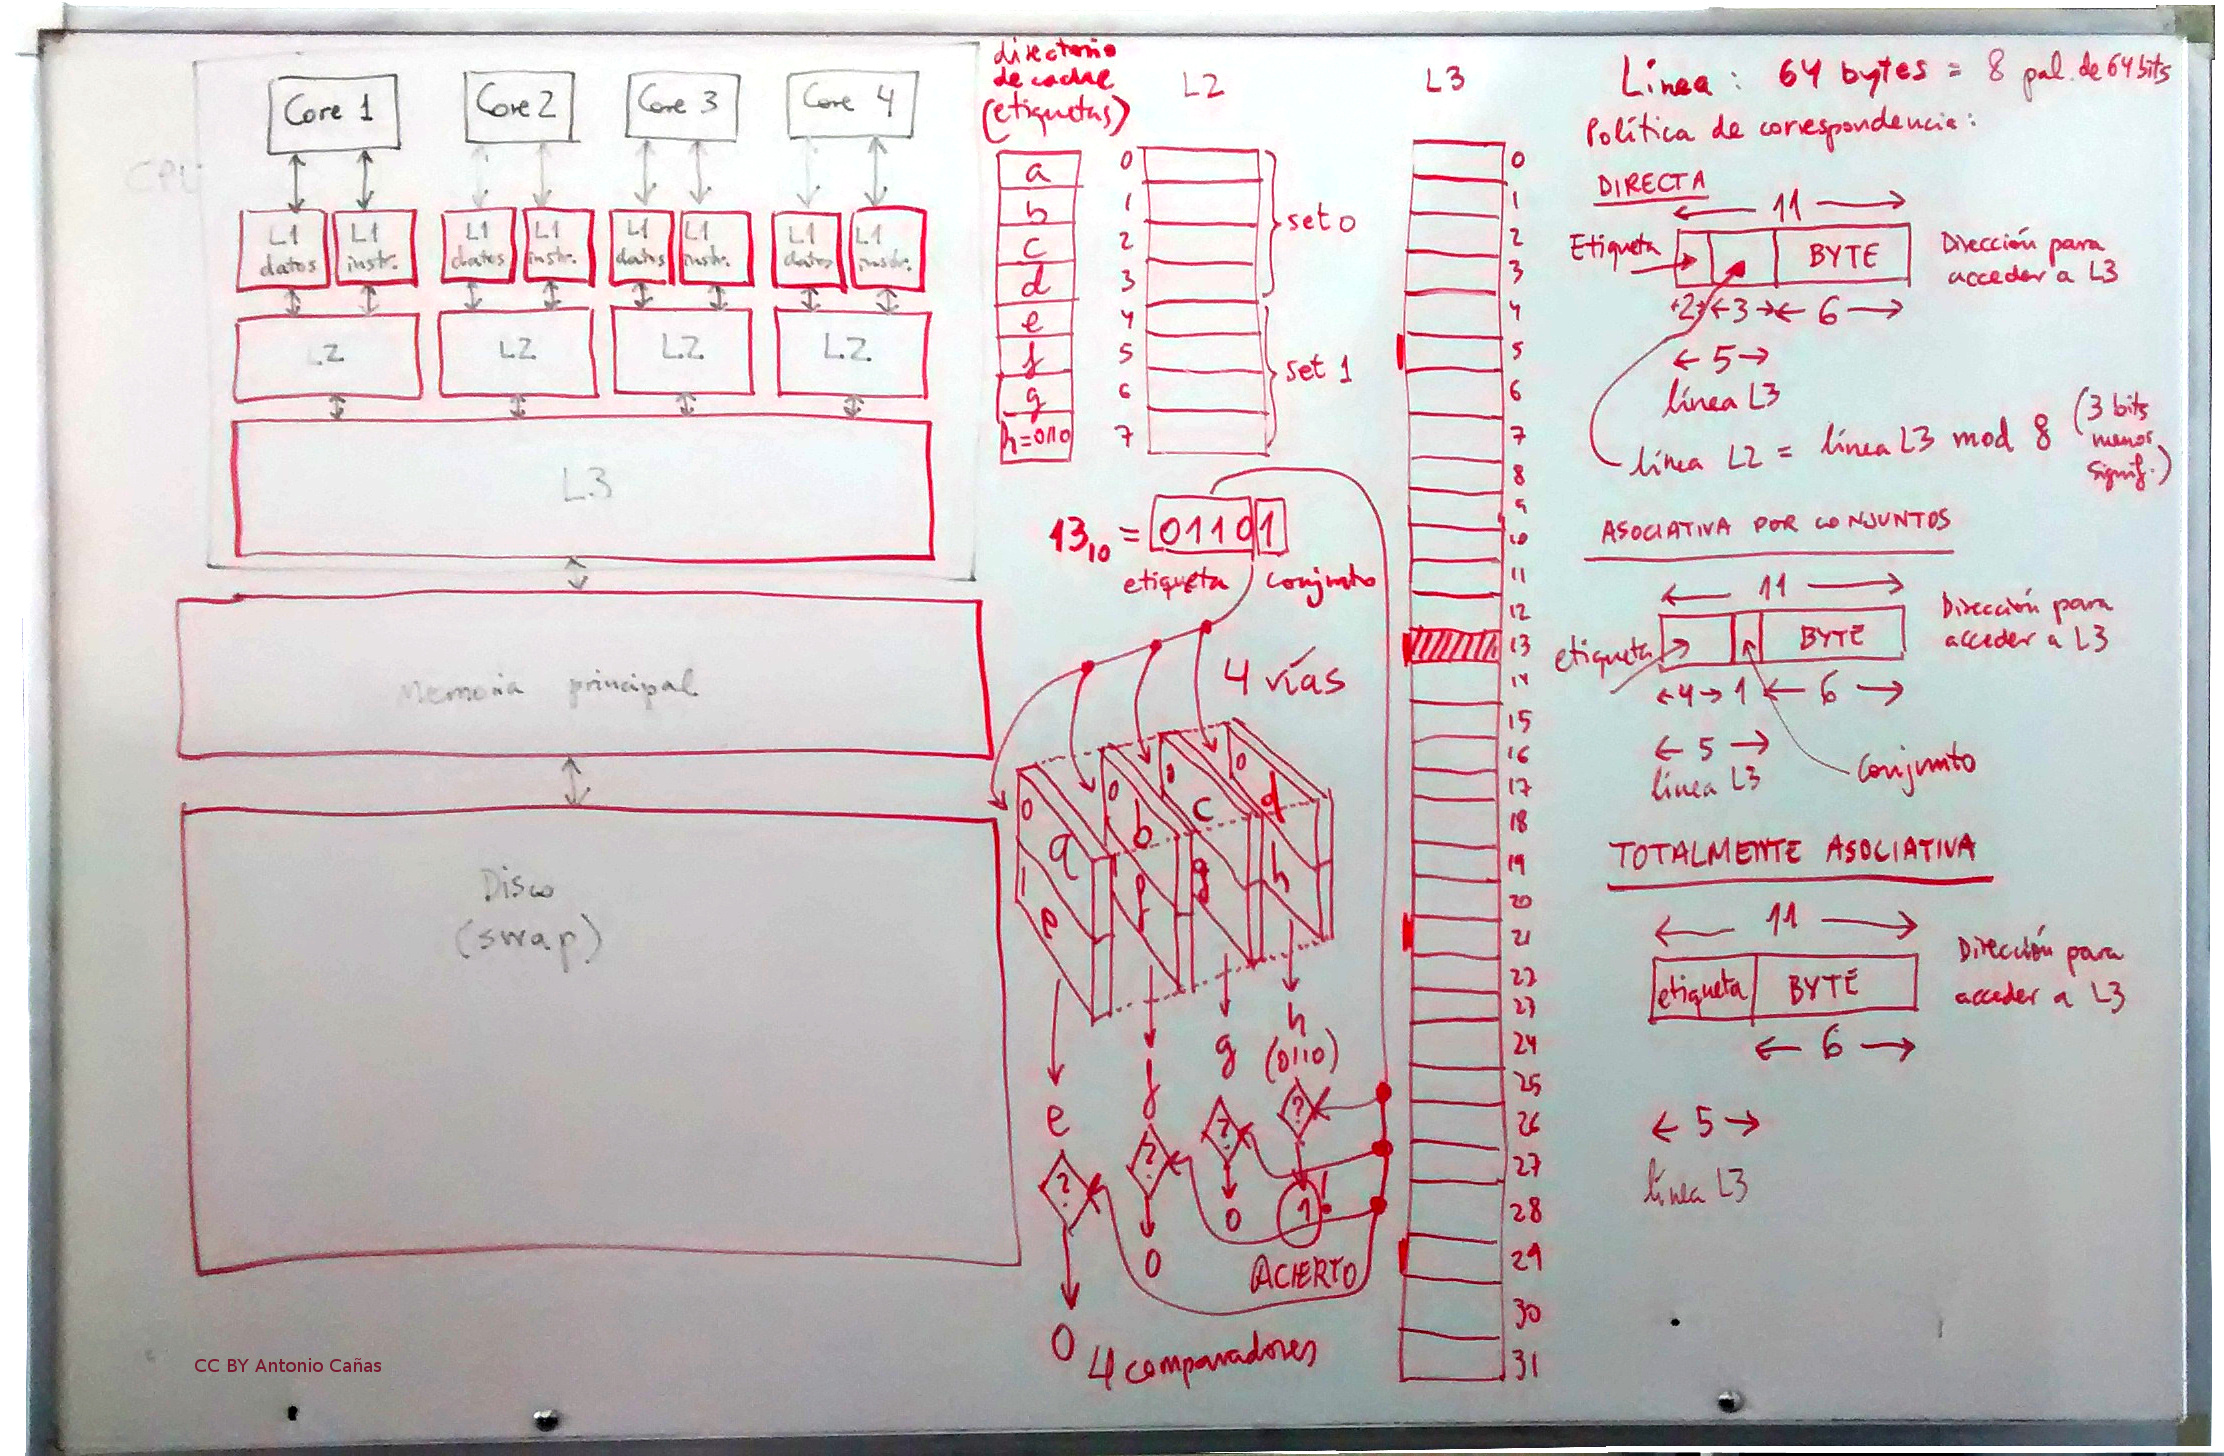 CPU
Core 1
Core 2
Core 3
Core 4
L1 datos
L1 instr.
L1 datos
L1 instr.
L1 datos
L1 instr.
L1 datos
L1 instr.
L2
L2
L2
L2
L3
Memoria principal
Disco
(swap)
CC BY Antonio Cañas
directorio
de cache
(etiquetas)
a
b
c
d
e
f
g
h=0110
L2
0
1
2
3
4
5
6
7
set 0
set 1
13₁₀ = 01101
etiqueta conjunto
4 vías
0 0 0 0
a b c d
1
e f g h
e f g h
(0110)
? ? ? ?
0 0 0 1!
ACIERTO
4 comparadores
L3
0
1
2
3
4
5
6
7
8
9
10
11
12
13
14
15
16
17
18
19
20
21
22
23
24
25
26
27
28
29
30
31
Linea: 64 bytes = 8 pal. de 64 bits
Política de correspondencia:
DIRECTA
11
Etiqueta
BYTE
Dirección para
acceder a L3
2 3 6
5
línea L3
línea L2 = línea L3 mod 8 (3 bits
menor
signif.)
ASOCIATIVA POR CONJUNTOS
11
etiqueta
BYTE
Dirección para
acceder a L3
4 1 6
5
línea L3
Conjunto
TOTALMENTE ASOCIATIVA
11
etiqueta BYTE
Dirección para
acceder a L3
6
5
línea L3